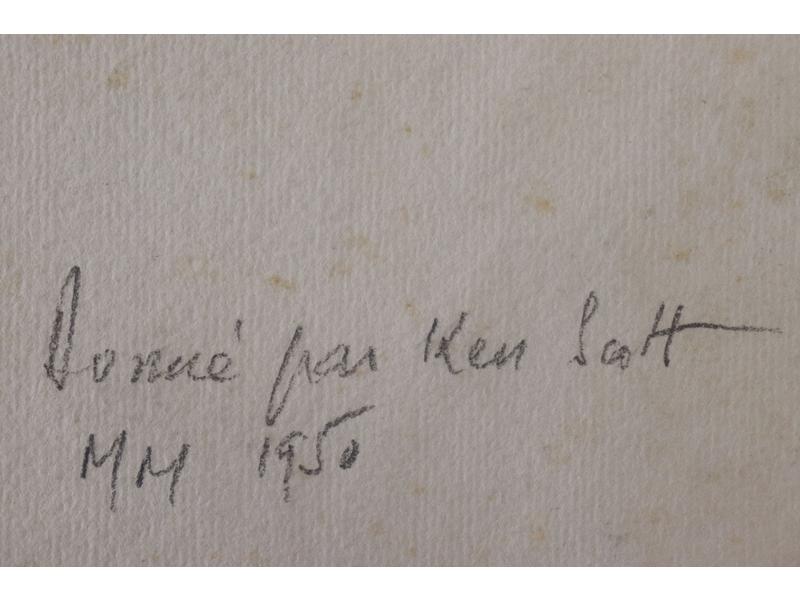 Donné par Ken Scott
MM 1950